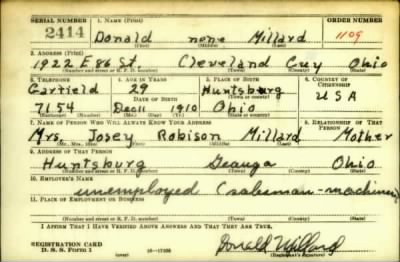 SERIAL NUMBER 1. NAME (Print) ORDER NUMBER
2414 Donald none Millard 1109
(First) (Middle) (Last)
2. ADDRESS (Print)
1922 E 86 St. Cleveland Cuy Ohio
(Number and street or R. F. D. number) (Town) (County) (State)
3. TELEPHONE 4. AGE IN YEARS 5. PLACE OF BIRTH 6. COUNTRY OF CITIZENSHIP
Garfield 29 Huntsburg
DATE OF BIRTH (Town or county) U S A
7154 Dec 11 1910 Ohio
(Exchange) (Number) (Mo.) (Day) (Yr.) (State or country)
7. NAME OF PERSON WHO WILL ALWAYS KNOW YOUR ADDRESS 8. RELATIONSHIP OF THAT PERSON
Mrs. Josey Robison Millard Mother
(Mr., Mrs., Miss) (First) (Middle) (Last)
9. ADDRESS OF THAT PERSON
Huntsburg Geauga Ohio
(Number and street or R. F. D. number) (Town) (County) (State)
10. EMPLOYER'S NAME
unemployed (salesman-machinery)
11. PLACE OF EMPLOYMENT OR BUSINESS
(Number and street or R. F. D. number) (Town) (County) (State)
I AFFIRM THAT I HAVE VERIFIED ABOVE ANSWERS AND THAT THEY ARE TRUE.
REGISTRATION CARD
D. S. S. Form 1 (over) Donald Millard
(Registrant's signature)